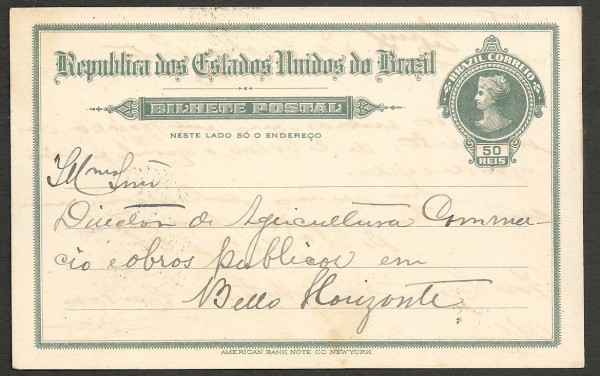 Republica dos Estados Unidos do Brazil
BRAZIL CORREIO
BILHETE POSTAL
NESTE LADO SÓ O ENDEREÇO
50
REIS
Illmo Snr
Director de Agricultura Commer-
cio e obros publicos em
Bello Horizonte
AMERICAN BANK NOTE CO NEW YORK